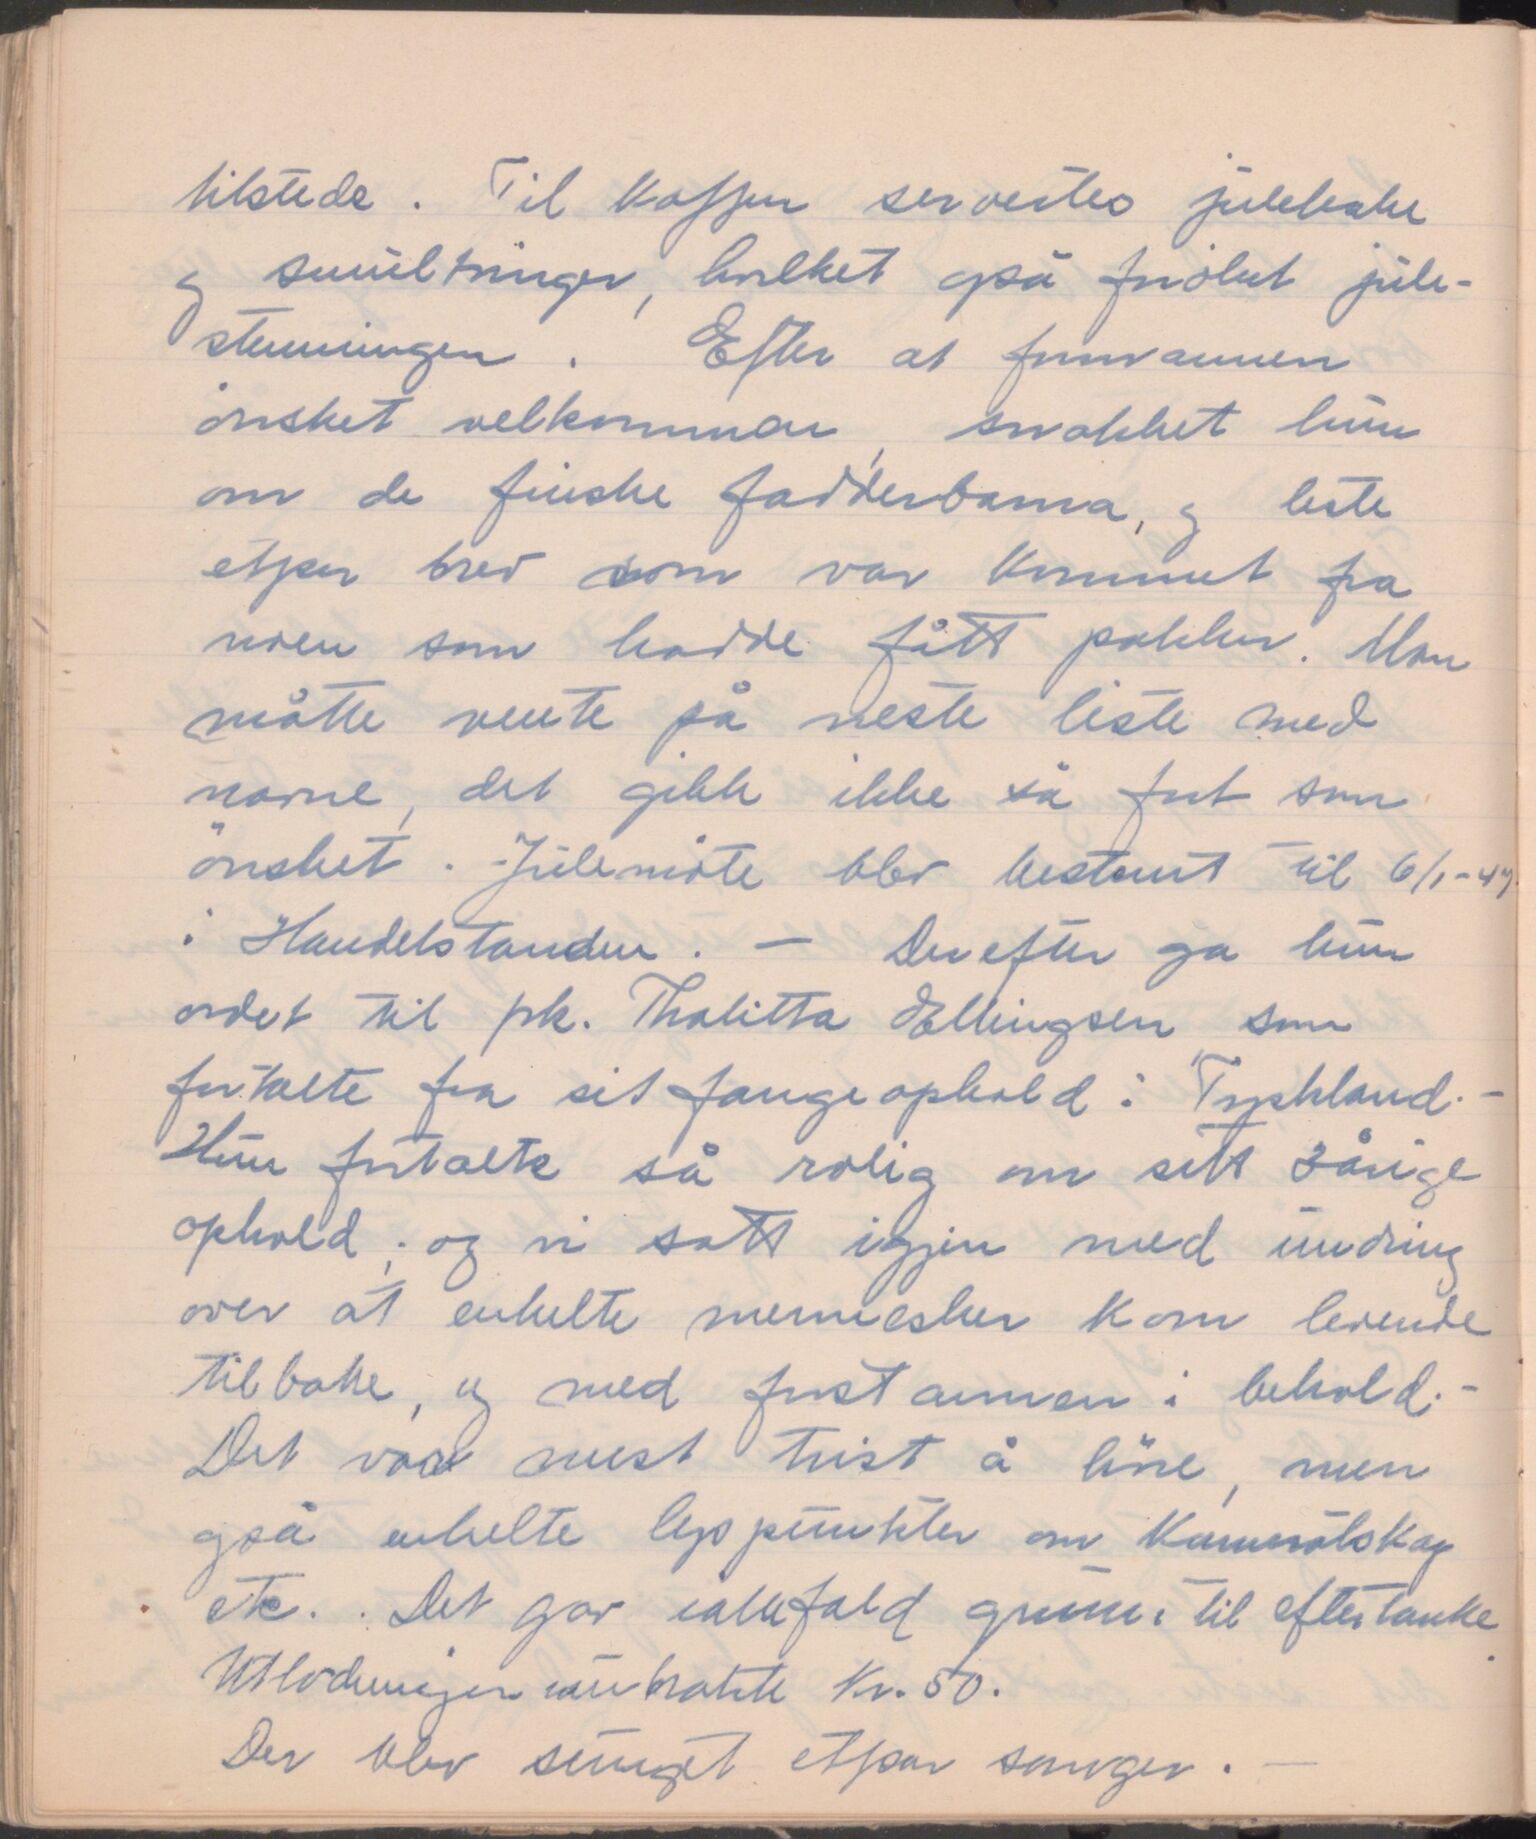 tilstede. Til kaffen servertes julekake
og smultringer, hvilket også forhøiet jule-
stemningen. Efter at formannen
ønsket velkommen, snakket hun
om de finske fadderbarna, og leste
etpar brev som var kommet fra
noen som hadde fått pakker. Man
måtte vente på neste liste med
navne, det gikk ikke så fort som
ønsket. Julemøte blev bestemt til 6/1-47.
i Handelstanden. — Derefter ga hun
ordet til frk. Thalitta Ellingsen som
fortalte fra sit fangeophold i Tyskland. -
Hun fortalte så rolig om sitt 3årige
ophold, og vi satt igjen med undring
over at enkelte mennesker kom levende
tilbake, og med forstannen i behold. -
Det var mest trist å høre, men
også enkelte lyspunkter om kameratskap
etc. . Det gav iallefald grunn til eftertanke.
Utlodningen innbrakte Kr. 50.
Der blev sunget etpar sanger. —